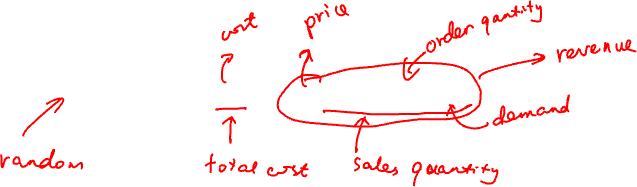 cost
price
order qantity
revenue
demand
random
total cost
sales quantity